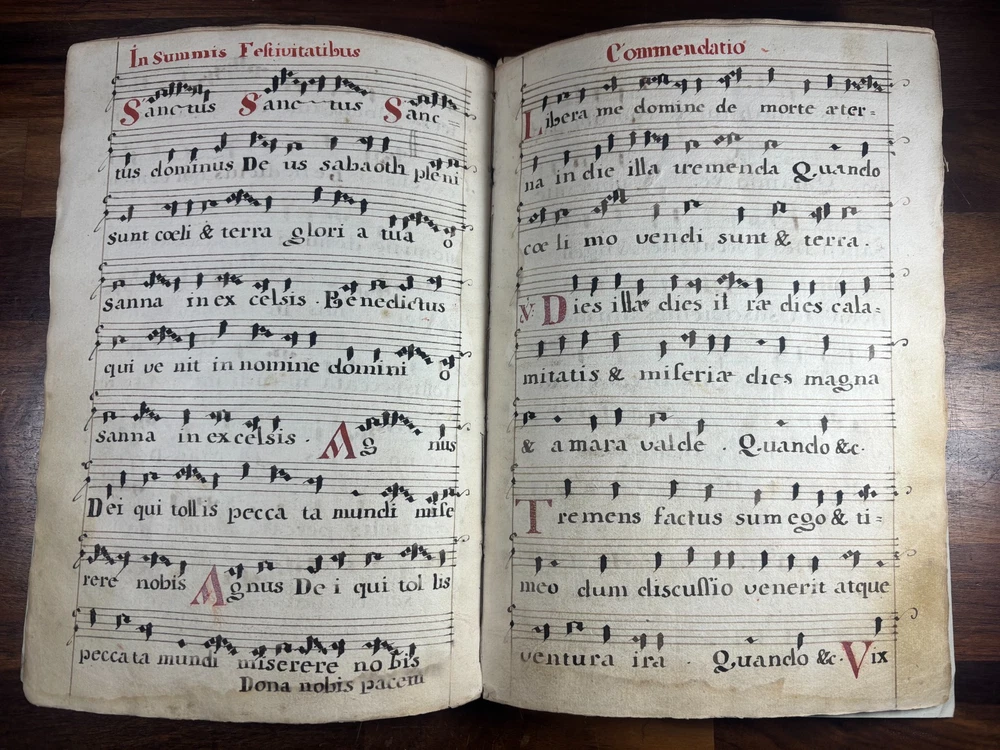 In Summis Festivitatibus
Sanctus Sanc tus Sanc =
tus dominus De us sabaoth pleni
sunt cœli & terra glori a tua o
sanna in ex celsis . Benedictus
qui ve nit in nomine domini o
sanna in ex celsis . Ag nus
Dei qui tollis pecca ta mundi mise
rere nobis Agnus De i qui tol lis
peccata mundi miserere no bis
Dona nobis pacem
Commendatio
Libera me domine de morte æter=
na in die illa tremenda Quando
cœ li mo vendi sunt & terra .
℣: Dies illæ dies il ræ dies cala=
mitatis & miseriæ dies magna
& amara valde . Quando &c.
Tremens factus sum ego & ti=
meo dum discussio venerit atque
ventura ira . Quando &c. Vix